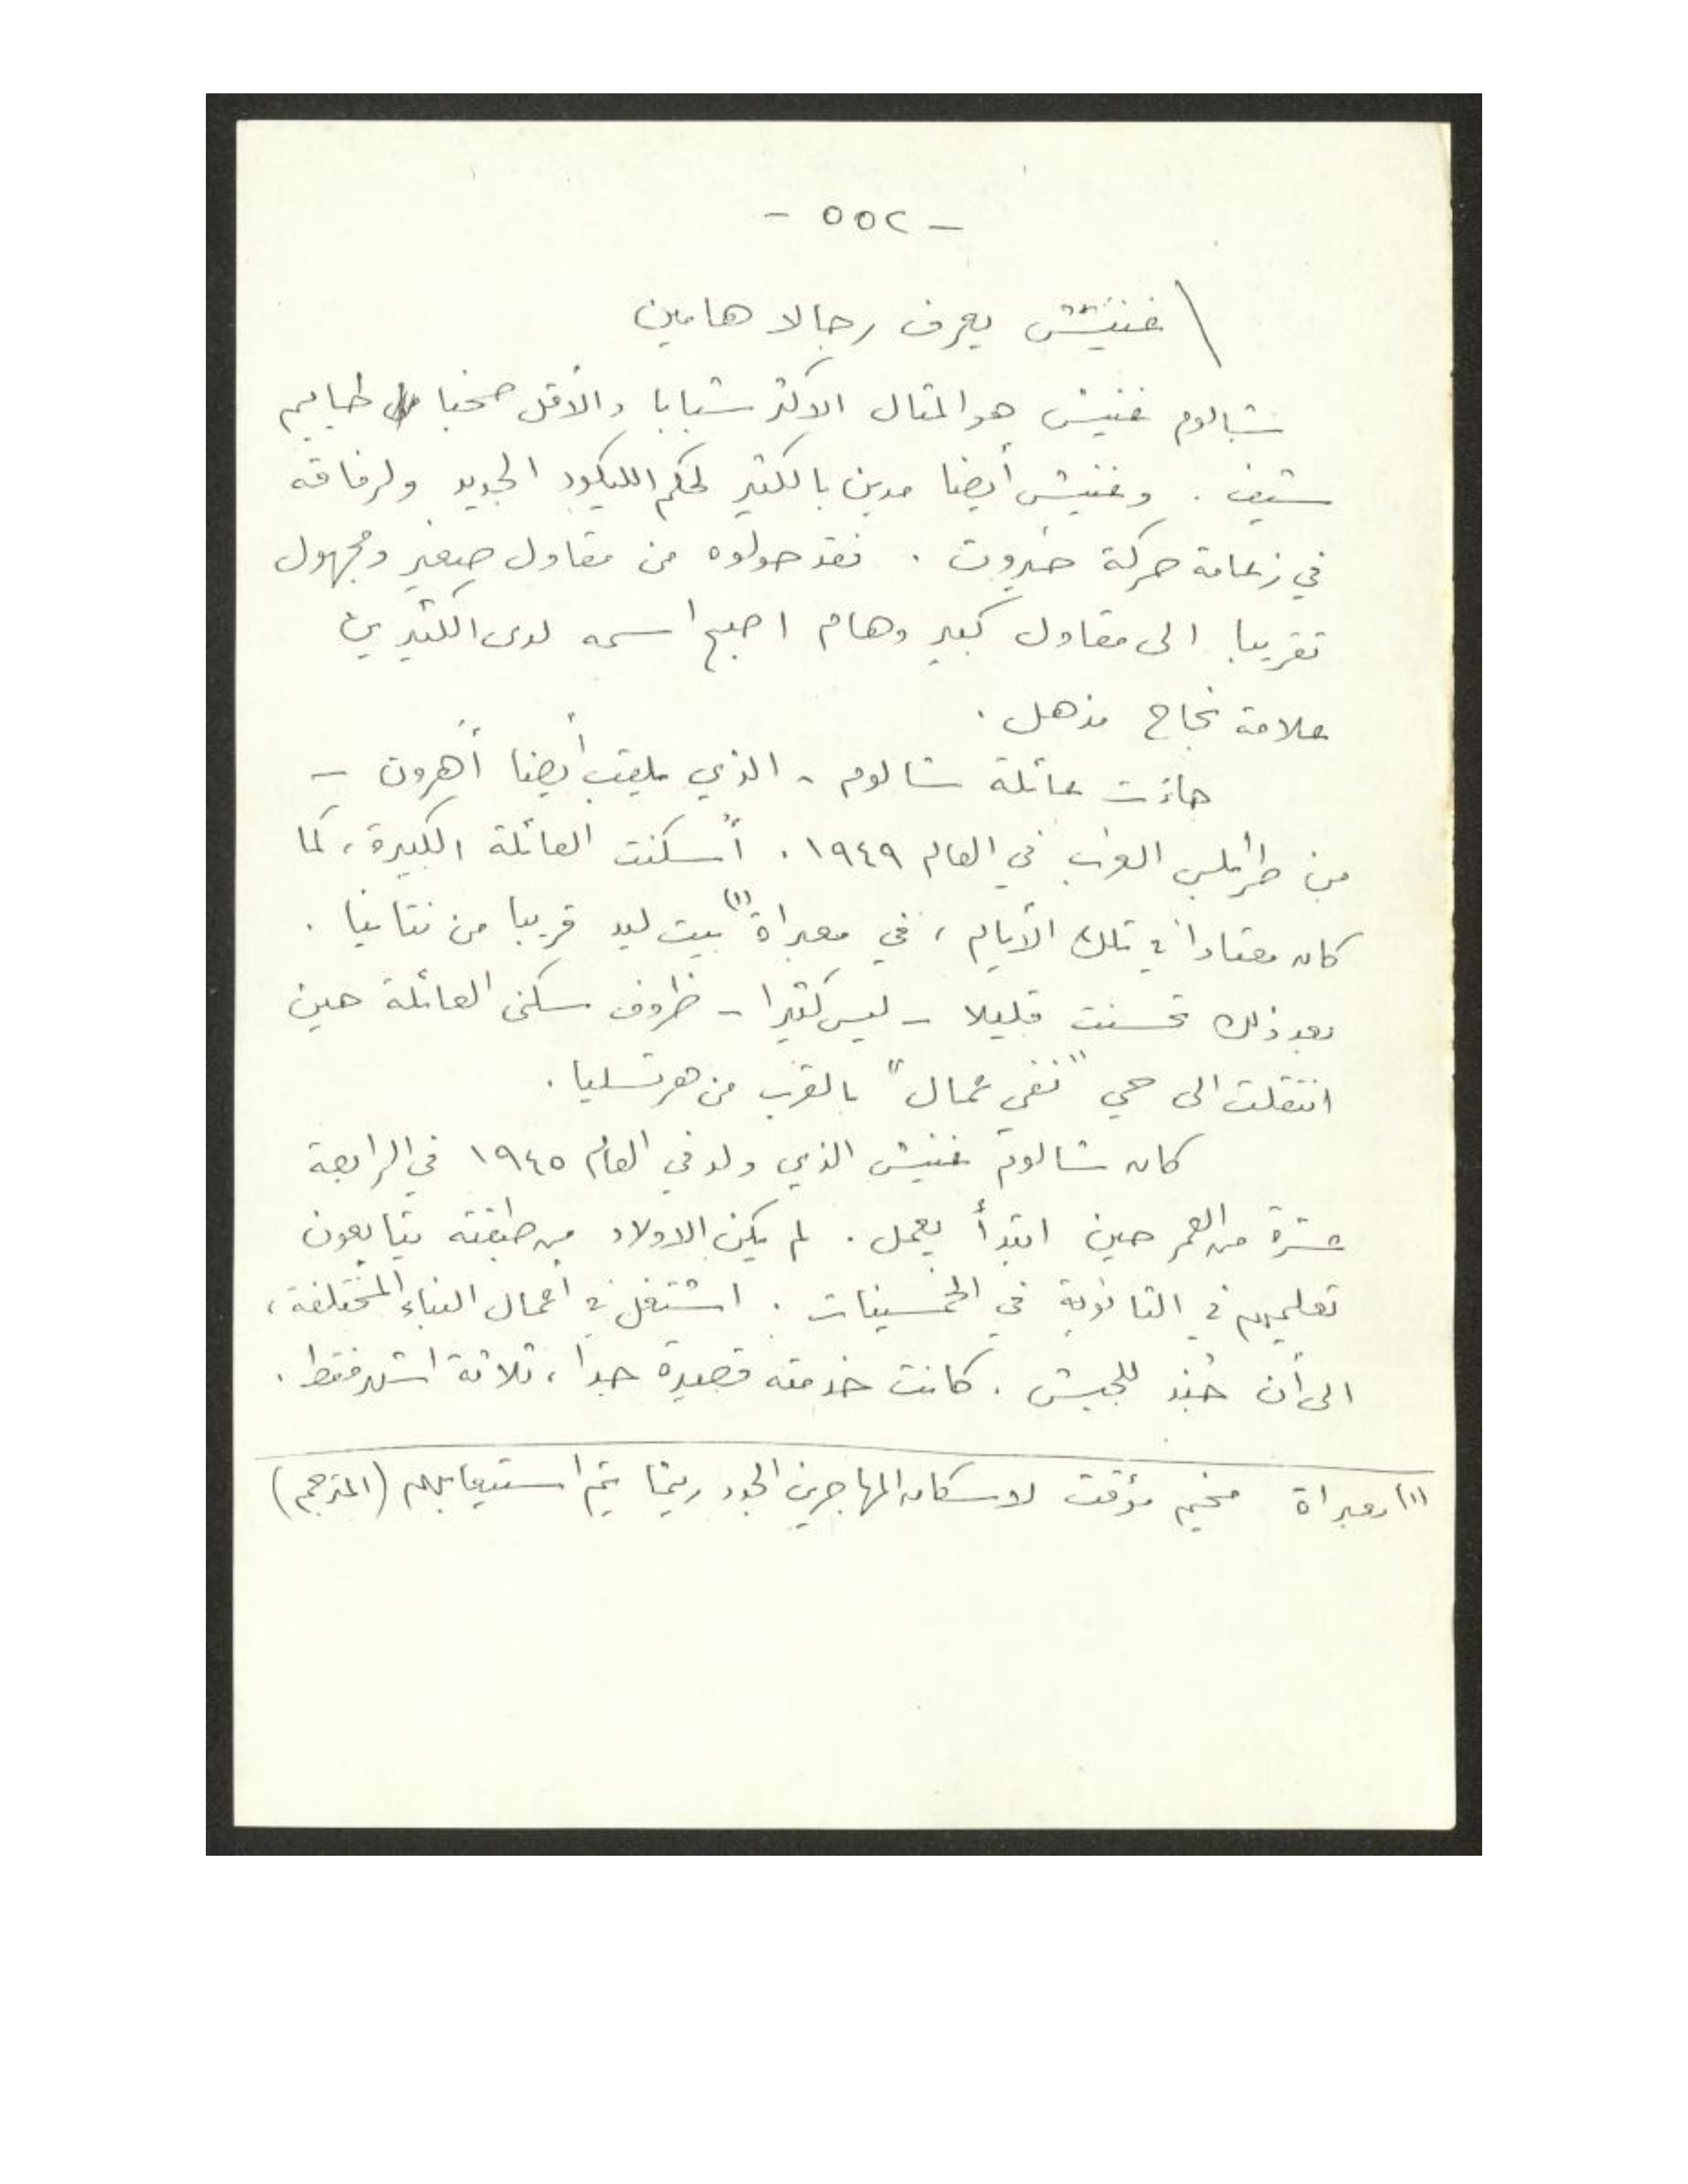 - ٥٥٢ -
غنيش يعرف رجالا هامين
شالوم غنيش هو المثال الاكثر شبابا والأقل صخبا لحاييم
ستيف . وغنيش أيضا مدين بالكثير لحكم الليكود الجديد ولرفاقه
في زعامة حركة حيروت . فقد حولوه من مقاول صغير ومجهول
تقريبا الى مقاول كبير وهام اصبح اسمه لدى الكثيرين
علامة نجاح مذهل .
جاءت عائلة شالوم - الذي يلقب أيضا أهرون -
من طرابلس الغرب في العام ١٩٤٩ . أُسكنت العائلة الكبيرة ، كما
كان معتادا في تلك الأيام ، في معبراة (١) بيت ليد قريبا من نتانيا .
بعد ذلك تحسنت قليلا - ليس كثيرا - ظروف سكنى العائلة حين
انتقلت الى حي "نفي عمال" بالقرب من هرتسليا .
كان شالوم غنيش الذي ولد في العام ١٩٤٥ في الرابعة
عشرة من العمر حين ابتدأ يعمل . لم يكن الاولاد من طبقته يتابعون
تعليمهم في الثانوية في الخمسينات . اشتغل في أعمال البناء المختلفة ،
الى أن جُند للجيش . كانت خدمته قصيرة جدا ، ثلاثة اشهر فقط .
(١) معبراة مخيم مؤقت لاسكان المهاجرين الجدد ريثما يتم استيعابهم (المترجم)